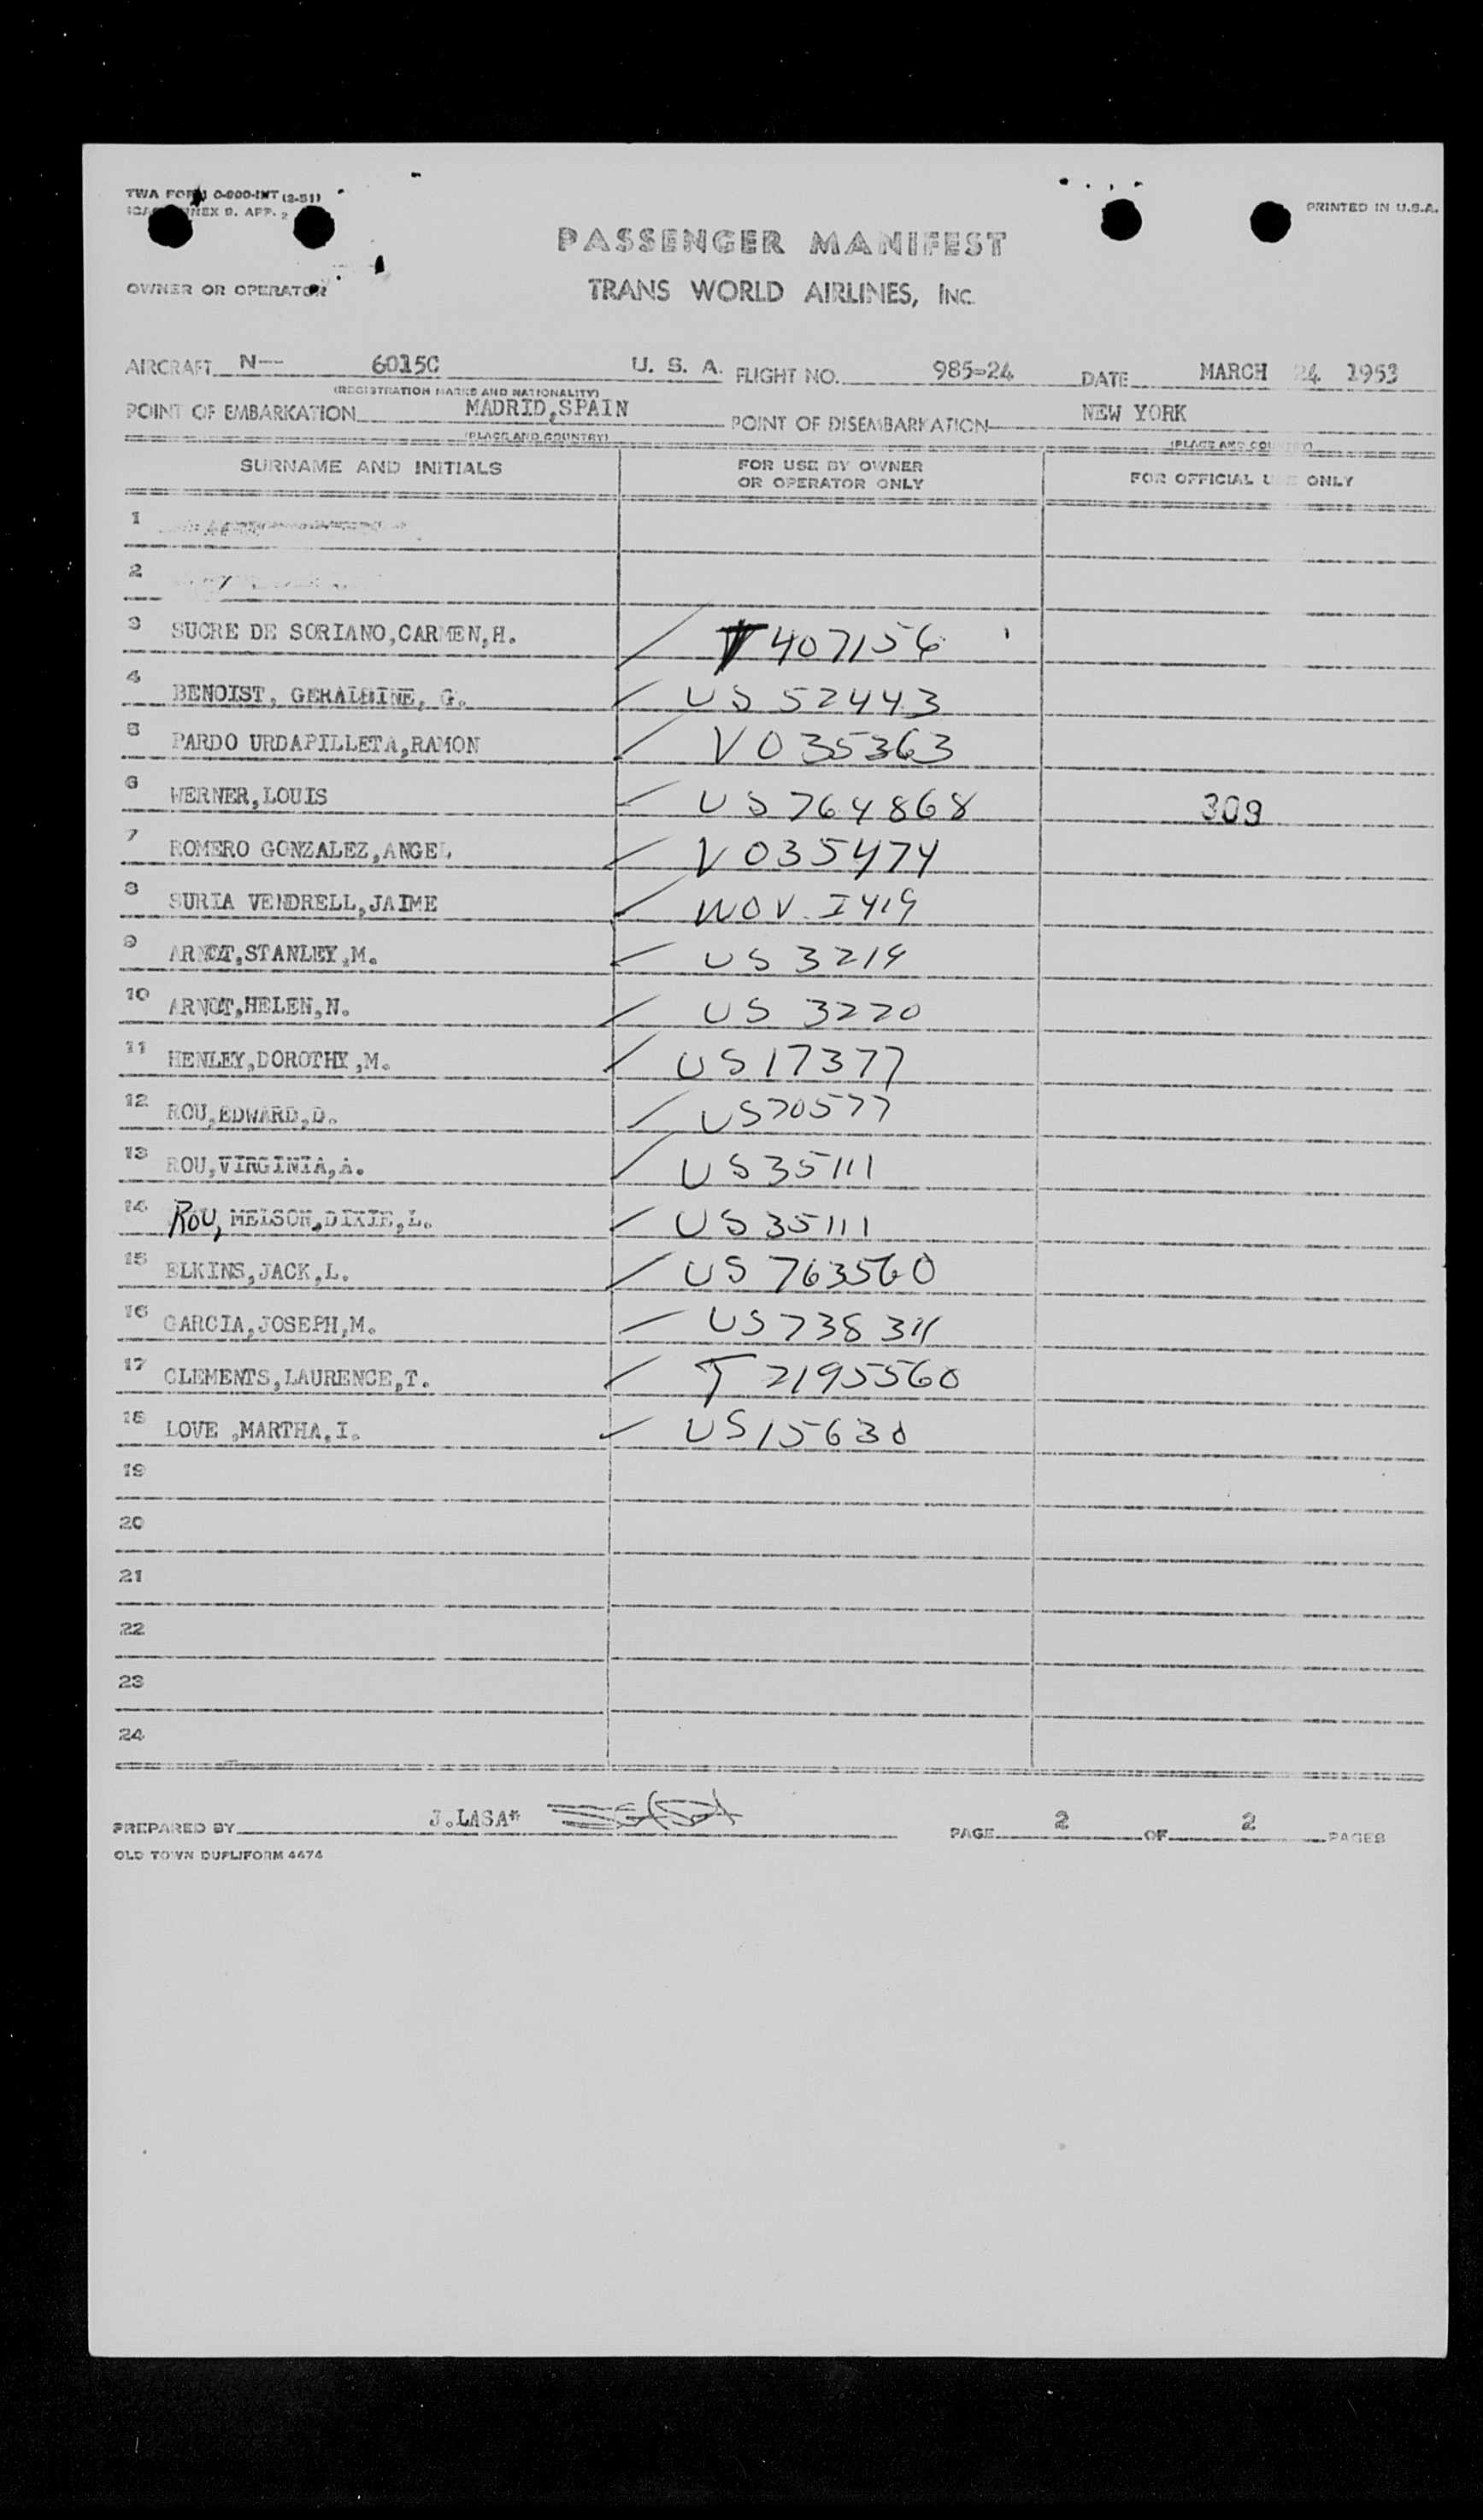 TWA FORM 0-800-INT (2-51)
ANNEX 9. APP. 2
PRINTED IN U.S.A.
PASSENGER MANIFEST
OWNER OR OPERATOR TRANS WORLD AIRLINES, INC.
AIRCRAFT N-- 6015C U. S. A. FLIGHT NO. 985-24 DATE MARCH 24 1953
(REGISTRATION MARKS AND NATIONALITY)
POINT OF EMBARKATION MADRID,SPAIN POINT OF DISEMBARKATION NEW YORK
(PLACE AND COUNTRY) (PLACE AND COUNTRY)
SURNAME AND INITIALS FOR USE BY OWNER OR OPERATOR ONLY FOR OFFICIAL USE ONLY
1
2
3 SUCRE DE SORIANO,CARMEN,H. V 407156
4 BENOIST, GERALDINE, G. US 52443
5 PARDO URDAPILLETA,RAMON V 035363
6 WERNER,LOUIS US 764868 309
7 ROMERO GONZALEZ,ANGEL V 035474
8 SURIA VENDRELL,JAIME NOV I419
9 ARNOT,STANLEY,M. US 3219
10 ARNOT,HELEN,N. US 3220
11 HENLEY,DOROTHY,M. US 17377
12 ROU,EDWARD,D. US 70577
13 ROU,VIRGINIA,A. US 35111
14 ROU, MELSON,DIXIE,L. US 35111
15 ELKINS,JACK,L. US 763560
16 GARCIA,JOSEPH,M. US 738311
17 CLEMENTS,LAURENCE,T. T 2195560
18 LOVE ,MARTHA,I. US 15630
19
20
21
22
23
24
PREPARED BY J.LASA* PAGE 2 OF 2 PAGES
OLD TOWN DUPLIFORM 4474